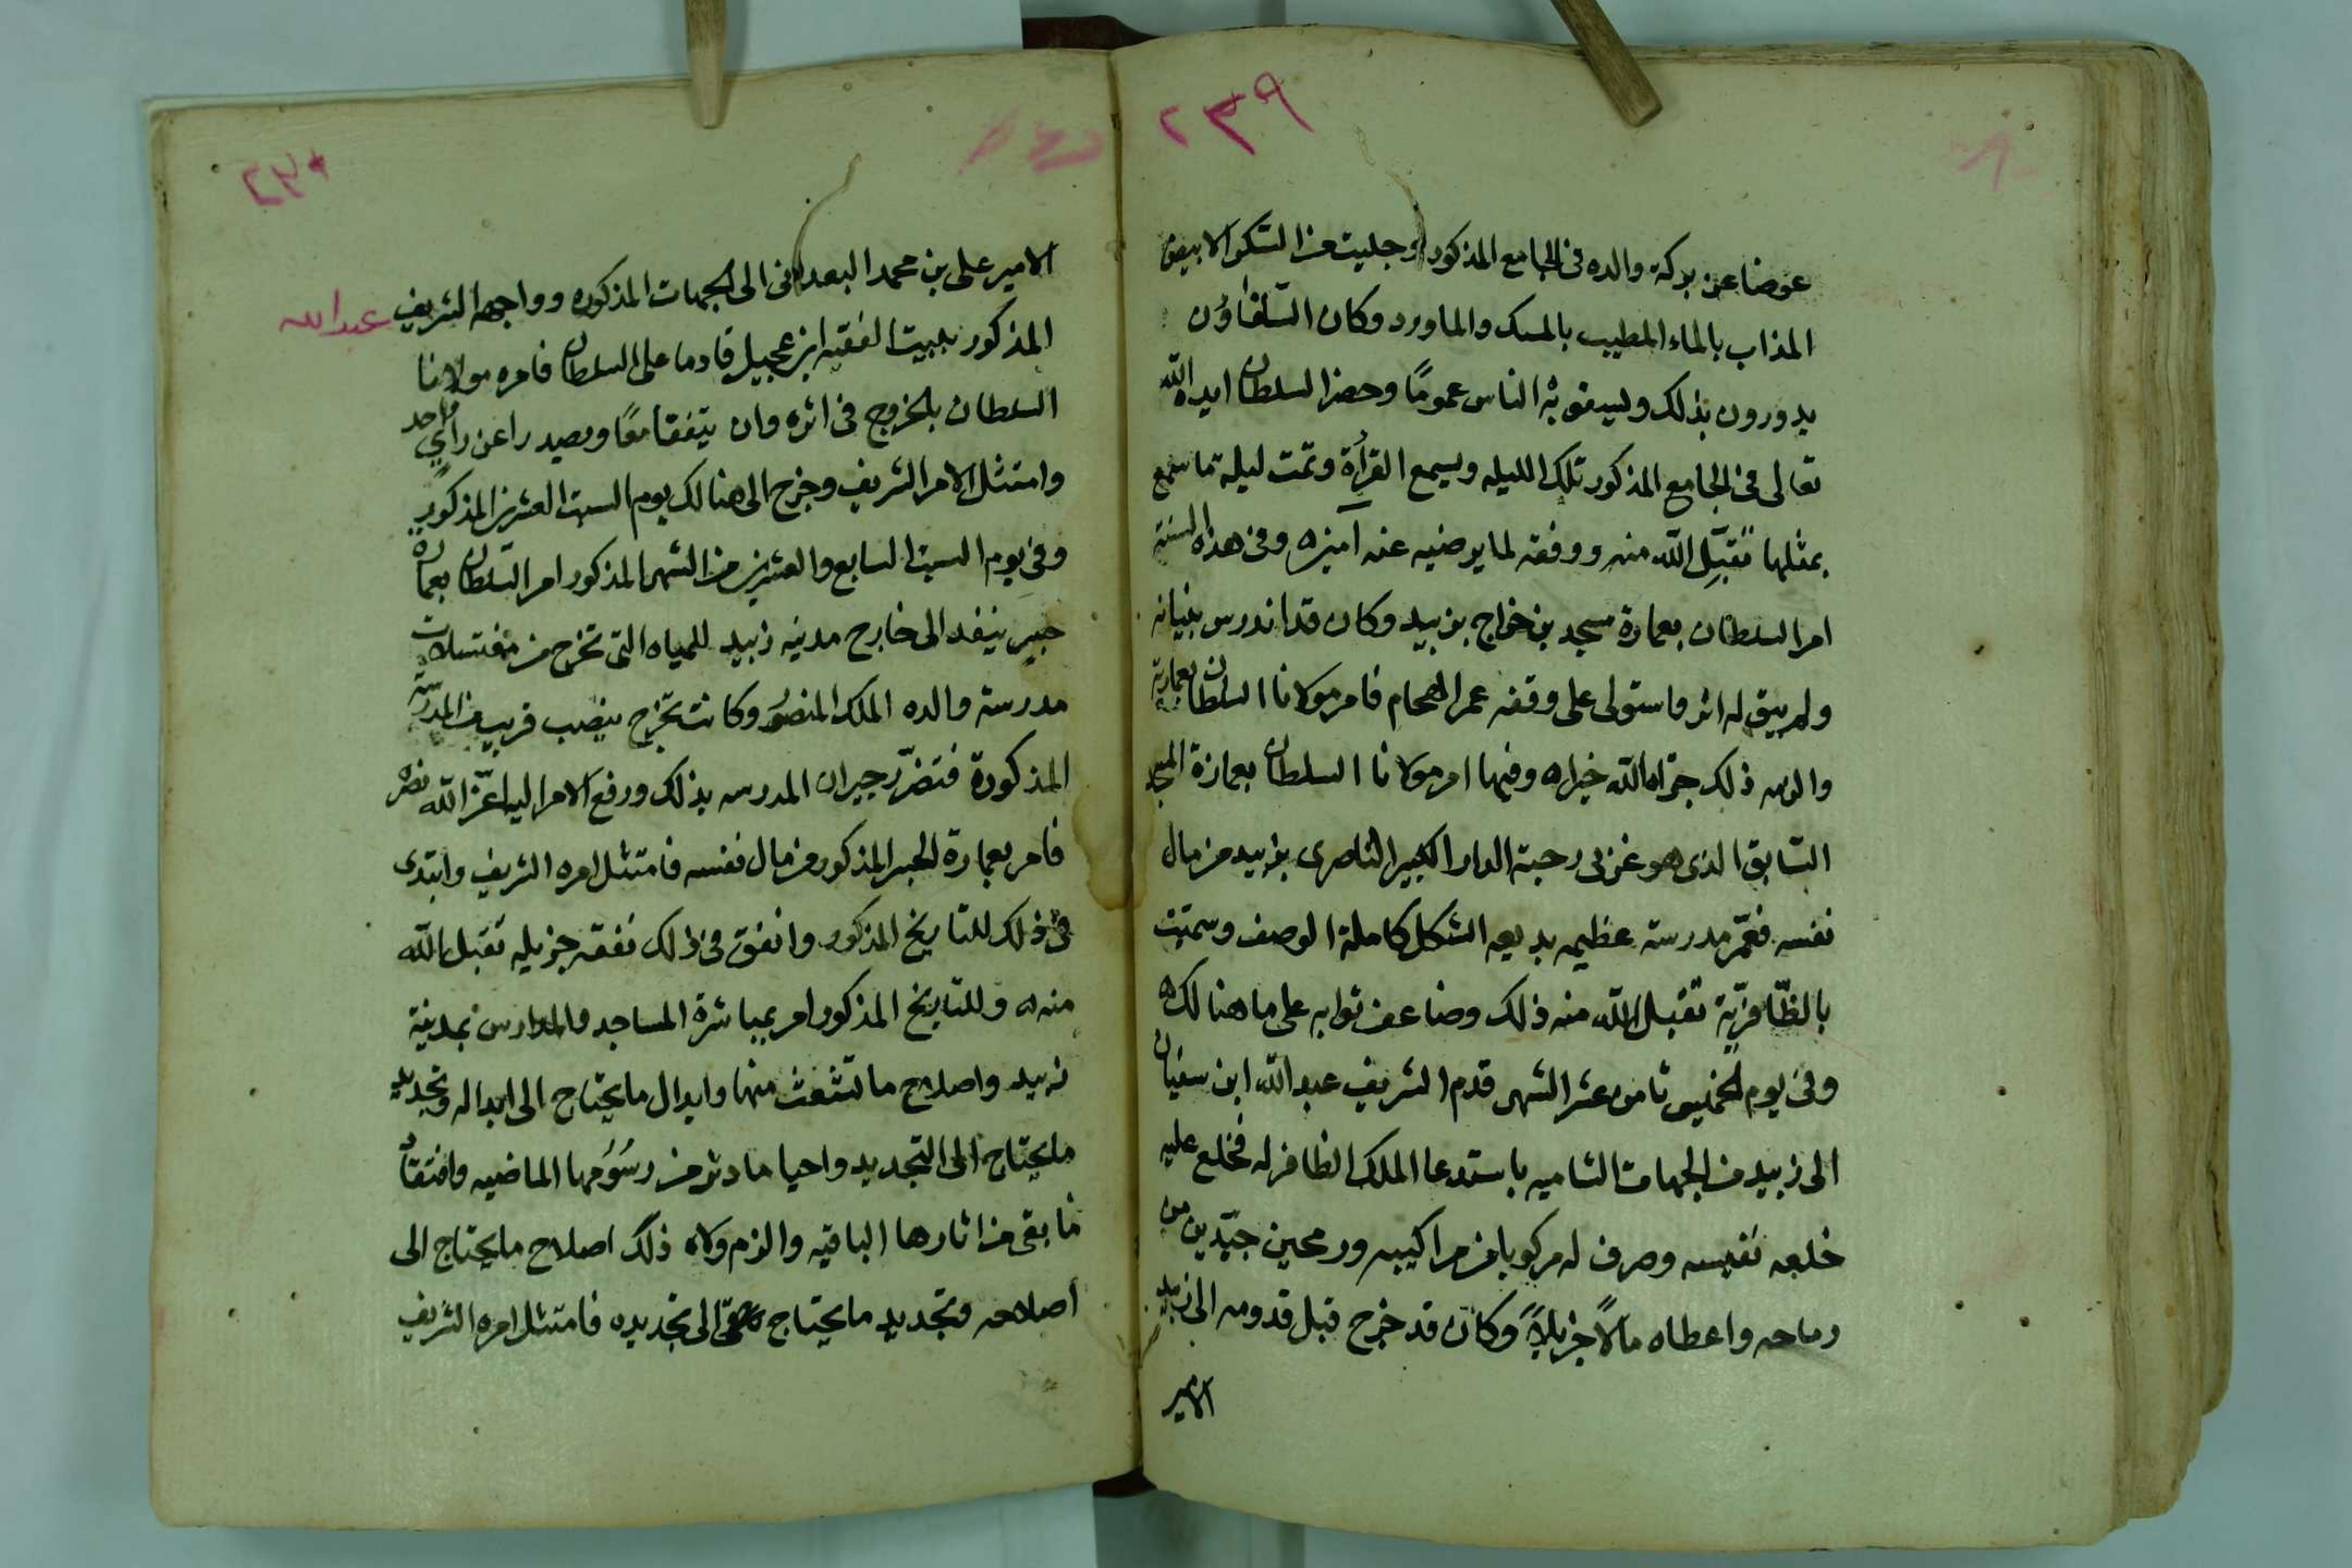 ٢٣٩
عوضا عن بركة والده في الجامع المذكور وجليت من السكر الابيض
المذاب بالماء المطيب بالمسك والماورد وكان السقاؤن
يدورون بذلك ويسقو به الناس عموماً وحضر السلطان ايده الله
تعالى في الجامع المذكور تلك الليله ويسمع القرأة وتمت ليلة ما سمع
بمثلها تقبّل الله منه ووفقه لما يرضيه عنه آمين وفي هذه السنة
امر السلطان بعمارة مسجد بن خواج بزبيد وكان قد اندرس بنيانه
ولم يبق له اثر واستولى على وقفه عمر الهحام فامر مولانا السلطان بعمارته
والزمه ذلك جزاه الله خيرا وفيها امر مولانا السلطان بعمارة المسجد
السابق الذي هو غربي رحبة الدار الكبير الناصري بزبيد من مال
نفسه فعمّر مدرسة عظيمه بديعه الشكل كاملة الوصف وسميت
بالظّافريّة تقبل الله منه ذلك وضاعف ثوابه على ما هنالك
وفي يوم الخميس ثامن عشر الشهر قدم الشريف عبد الله ابن سفيان
الى زبيد من الجهات الشاميه باستدعا الملك الظافر له فخلع عليه
خلعه نفيسه وصرف له مركوبا من مراكيبه ورمحين جيّدين من
رماحه واعطاه مالاً جزيلاً وكان قد خرج قبل قدومه الى زبيد
الامير
٢٣٠
الامير علي بن محمد البعداني الى الجهات المذكوره وواجهه الشريف عبدالله
المذكور ببيت الفقيه ابن عجيل قادما على السلطان فامره مولانا
السلطان بالخروج في اثره وان يتفقا معًا ويصيدرا عن رأي واحد
وامتثل الامر الشريف وخرج الى هنالك يوم السبت العشرين المذكور
وفي يوم السبت السابع والعشرين من الشهر المذكور امر السلطان بعمارة
جبير ينفد الى خارج مدنيه زبيد للمياه التي تخرج من مغتسلات
مدرسة والده الملك المنصور وكانت تخرج بنصب قريب من المدرسة
المذكورة فتضرّر جيران المدرسه بذلك ورفع الامر اليه اعزّ الله نصره
فامر بعمارة الجبر المذكور من مال نفسه فامتثل امره الشريف وابتدى
في ذلك للتاريخ المذكور وانفق في ذلك نفقه جزيله تقبل الله
منه وللتاريخ المذكور امر بمباشرة المساجد والمدارس بمدينة
زبيد واصلاح ما تشعث منها وابدال ما يحتاج الى ابداله وتجديد
ما يحتاج الى التجديد واحيا ما دثر من رسُومها الماضيه وافتقاد
ما بقي من اثارها الباقيه والزم ولاه ذلك اصلاح ما يحتاج الى
اصلاحه وتجديد ما يحتاج الى تجديده فامتثل امره الشريف